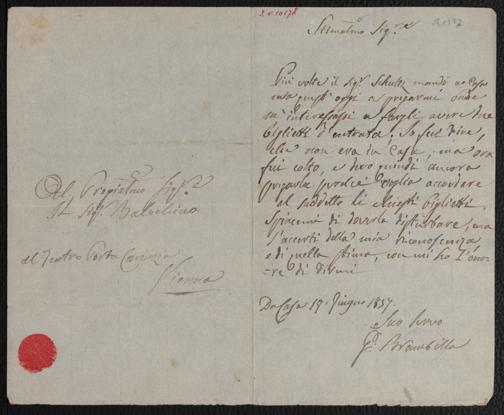 Al Pregiatmo Sigr.
Il Sigr. Balochino
al Teatro Porta Carinzia
Vienna
Stimatmo Sigr.
Più volte il Sigr. Schultz mandò a Casa
mia quest' oggi a pregarmi onde
m' interessassi a fargli avere due
biglietti d' entrata. Io feci dire,
che non era in Casa; ma ora
fui colto, e devo quindi ancora
pregarla perché voglia accordare
al suddetto li chiesti biglietti.
Spiacemi di doverla disturbare; ma
s'accerti della mia riconoscenza
e di quella stima, con cui ho l'ono-
re di dirmi
Da Casa 19. Giugno 1837.
Suo Servo
G. Brambilla